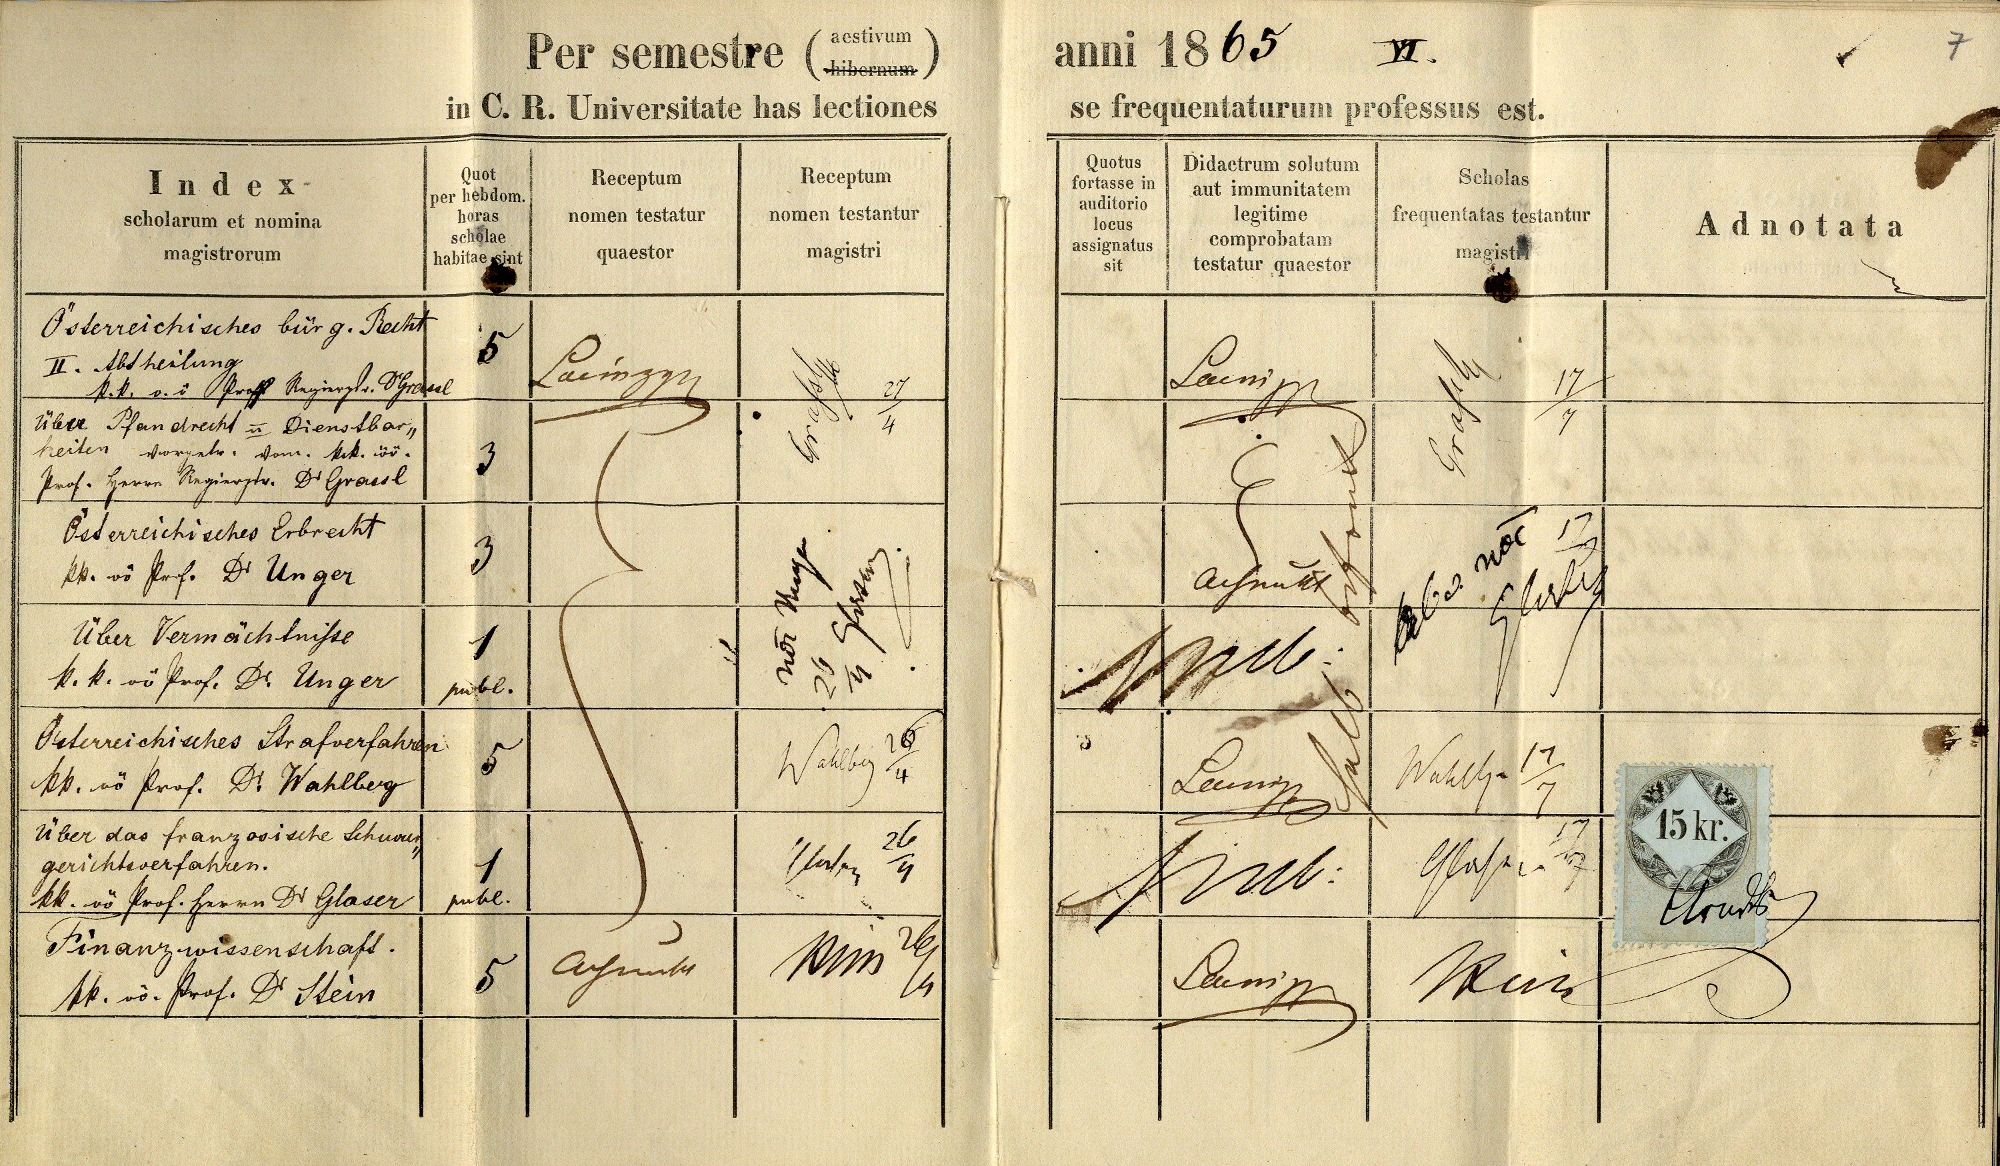 Per semestre ( aestivum hibernum ) anni 1865 VI. 7
in C. R. Universitate has lectiones se frequentaturum professus est.
Index
scholarum et nomina
magistrorum
Quot
per hebdom.
horas
scholae
habitae sint
Receptum
nomen testatur
quaestor
Receptum
nomen testantur
magistri
Quotus
fortasse in
auditorio
locus
assignatus
sit
Didactrum solutum
aut immunitatem
legitime
comprobatam
testatur quaestor
Scholas
frequentatas testantur
magistri
Adnotata
Österreichisches bürg. Recht
II. Abtheilung
k.k. o. ö Prof Regiergsr. Dr Grassl
5
Grassl
27/4
Grassl
17/7
Über Pfandrecht u Dienstbar„
heiten vorgetr. vom. k.k. öö.
Prof. Herrn Regiergsr. Dr Grassl
3
Österreichisches Erbrecht
kk. oö Prof. Dr Unger
3
26/4
Glaser
17/7
Glaser
Über Vermächtnisse
k. k. oö Prof. Dr. Unger
1
publ.
Österreichisches Strafverfahren
kk. oö Prof. Dr. Wahlberg
5
Wahlberg 26/4
Wahlbg 17/7
Über das französische Schwur„
gerichtsverfahren.
kk. oö Prof. Herrn Dr Glaser
1
publ.
Glaser 26/4
Glaser 17/7
15 kr.
Arndts
Finanzwissenschaft.
kk. oö. Prof. Dr Stein
5
Stein 26/4
Stein